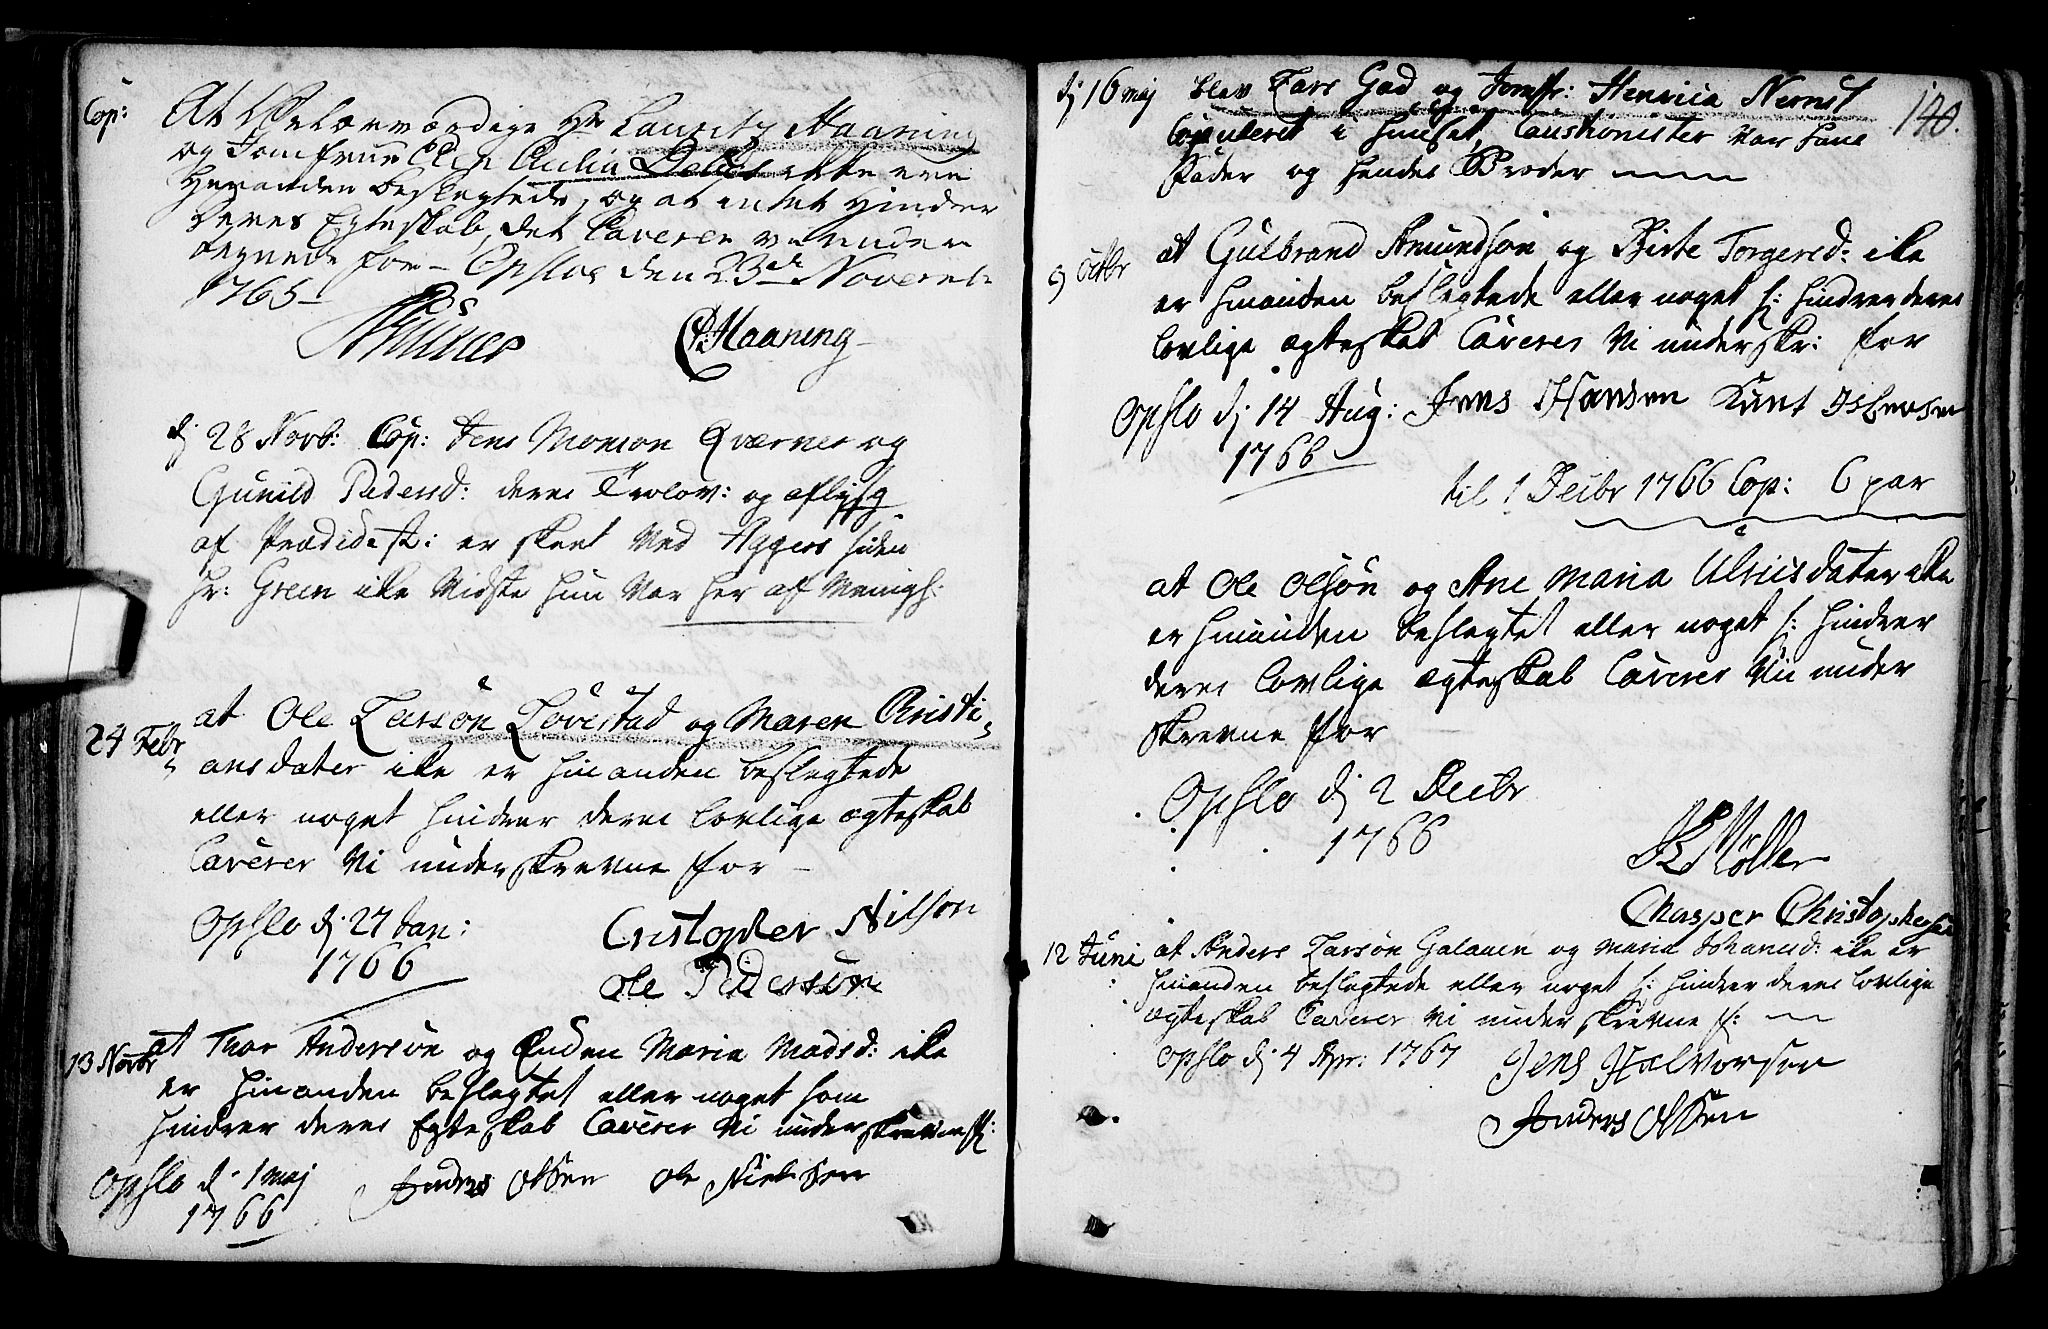 Cop:
At Velærværdige Hr Lauritz Haaning
og Jomfrue Elen Cecilia ikke ere
Hverandre beslegtede, og at intet Hindrer
Deres Egteskab, det Caverer vi under
tegnede for – Opsloe den 23de Novemb:
1765 –
C Haaning
dj 28 Novb: Cop: Jens Monson Qværner og
Gunild Pedersd: deres Trolov: og aflysg
af Prædikest: er skeet ved Aggers siden
Hr: Green ike vidste hun var her af Menigh:
24 Febr
at Ole Larsøn Lovestad og Maren Christi-
ansdater ike er hinanden beslegtede
eller noget hindrer deres lovlige ægteskab
Caverer vi underskrevne for –
Opslo dj 27 Jan:
1766
Cristopher Nilson
Ole Pedersøn
13 Novbr
at Thor Andersøn og Maria Madsd: ike
er hinanden beslegtet eller noget som
hindrer deres Egteskab Caverer vi underskrevne f:
Opslo d. 1 maj
1766
Anders Olsen Ole Nielsen
140.
dj 16 maj blev Lars Gad og Jomfr: Henrica Nernst
Copuleret i huuset, Cautionister var hans
Fader og hendes Broder
9 Octbr
at Gulbrand Amundsøn og Birte Torgersd: ike
er hinanden beslegtede eller noget s: hindrer deres
lovlige ægteskab Caverer vi underskr: for
Opslo dj 14 Aug: Jens Hansen Knut Esbensen
1766
til 1 Decbr 1766 Cop: 6 par
at Ole Olsøn og Ane Maria Ulricsdater ike
er hinanden beslegtet eller noget s: hindrer
deres lovlige ægteskab Caverer vii under
skrevne for
Opslo dj 2 Decbr
1766
Møller
Chasper Christophersen
12 Juni
at Anders Larsøn Galaaen og Maria Johansd: ike er
hinanden beslegtede eller noget s: hindrer deres lovlige
ægteskab Caverer vi underskrevne f:
Opslo dj 4 Apr: 1767 Jens Halvorsen
Anders Olsen